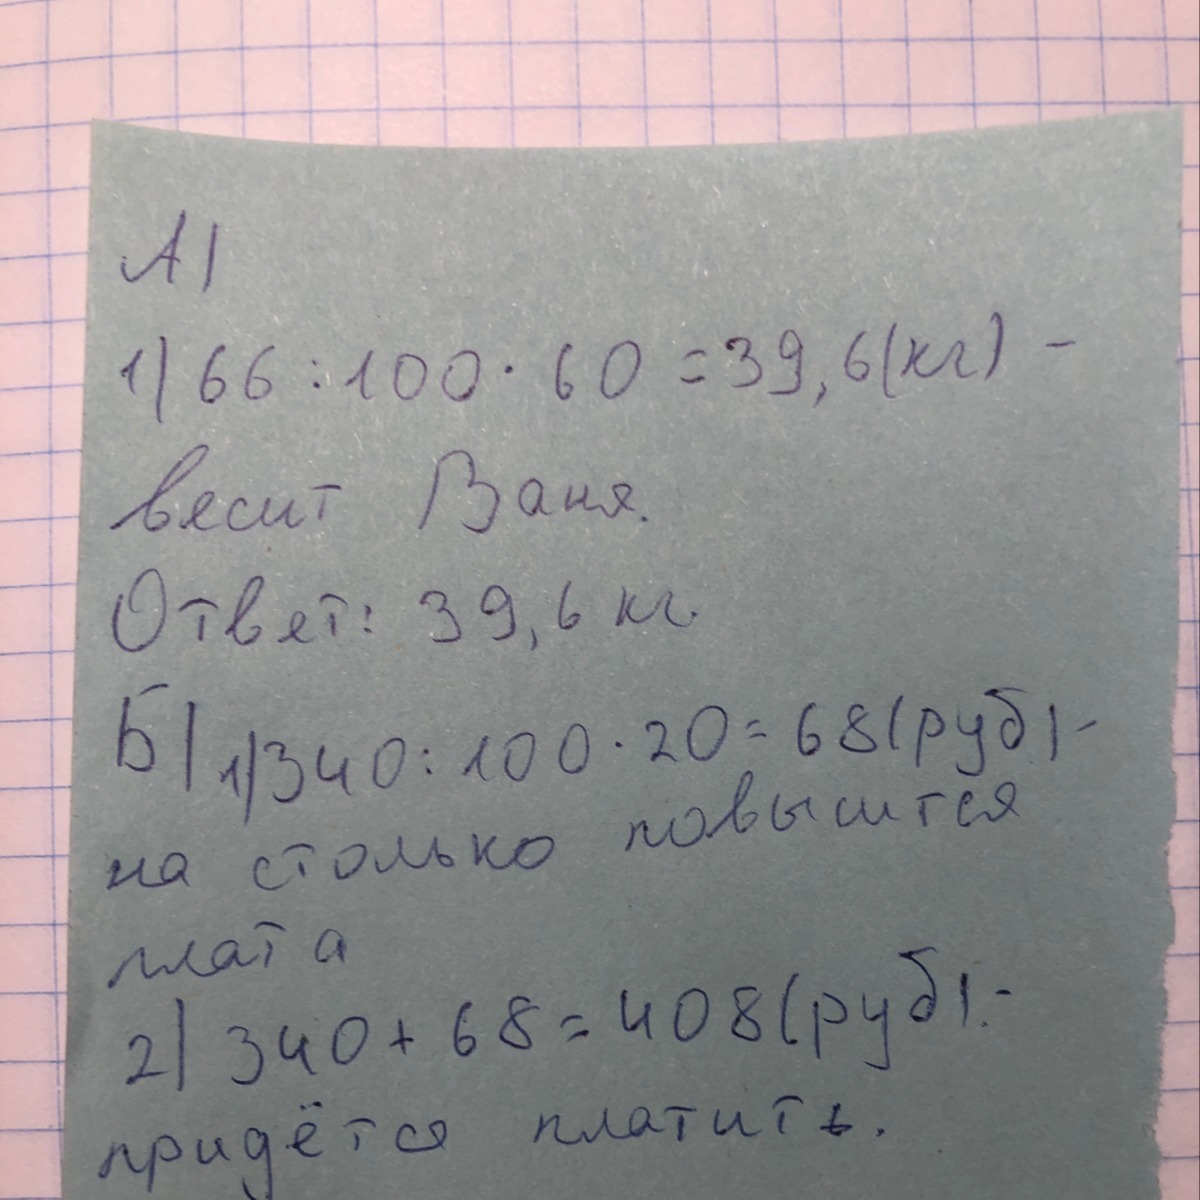 А)
1) 66 : 100 · 60 = 39,6(кг) -
весит Ваня.
Ответ: 39,6 кг.
Б) 1) 340 : 100 · 20 = 68(руб) -
на столько повысится
плата
2) 340 + 68 = 408(руб). -
придётся платить.